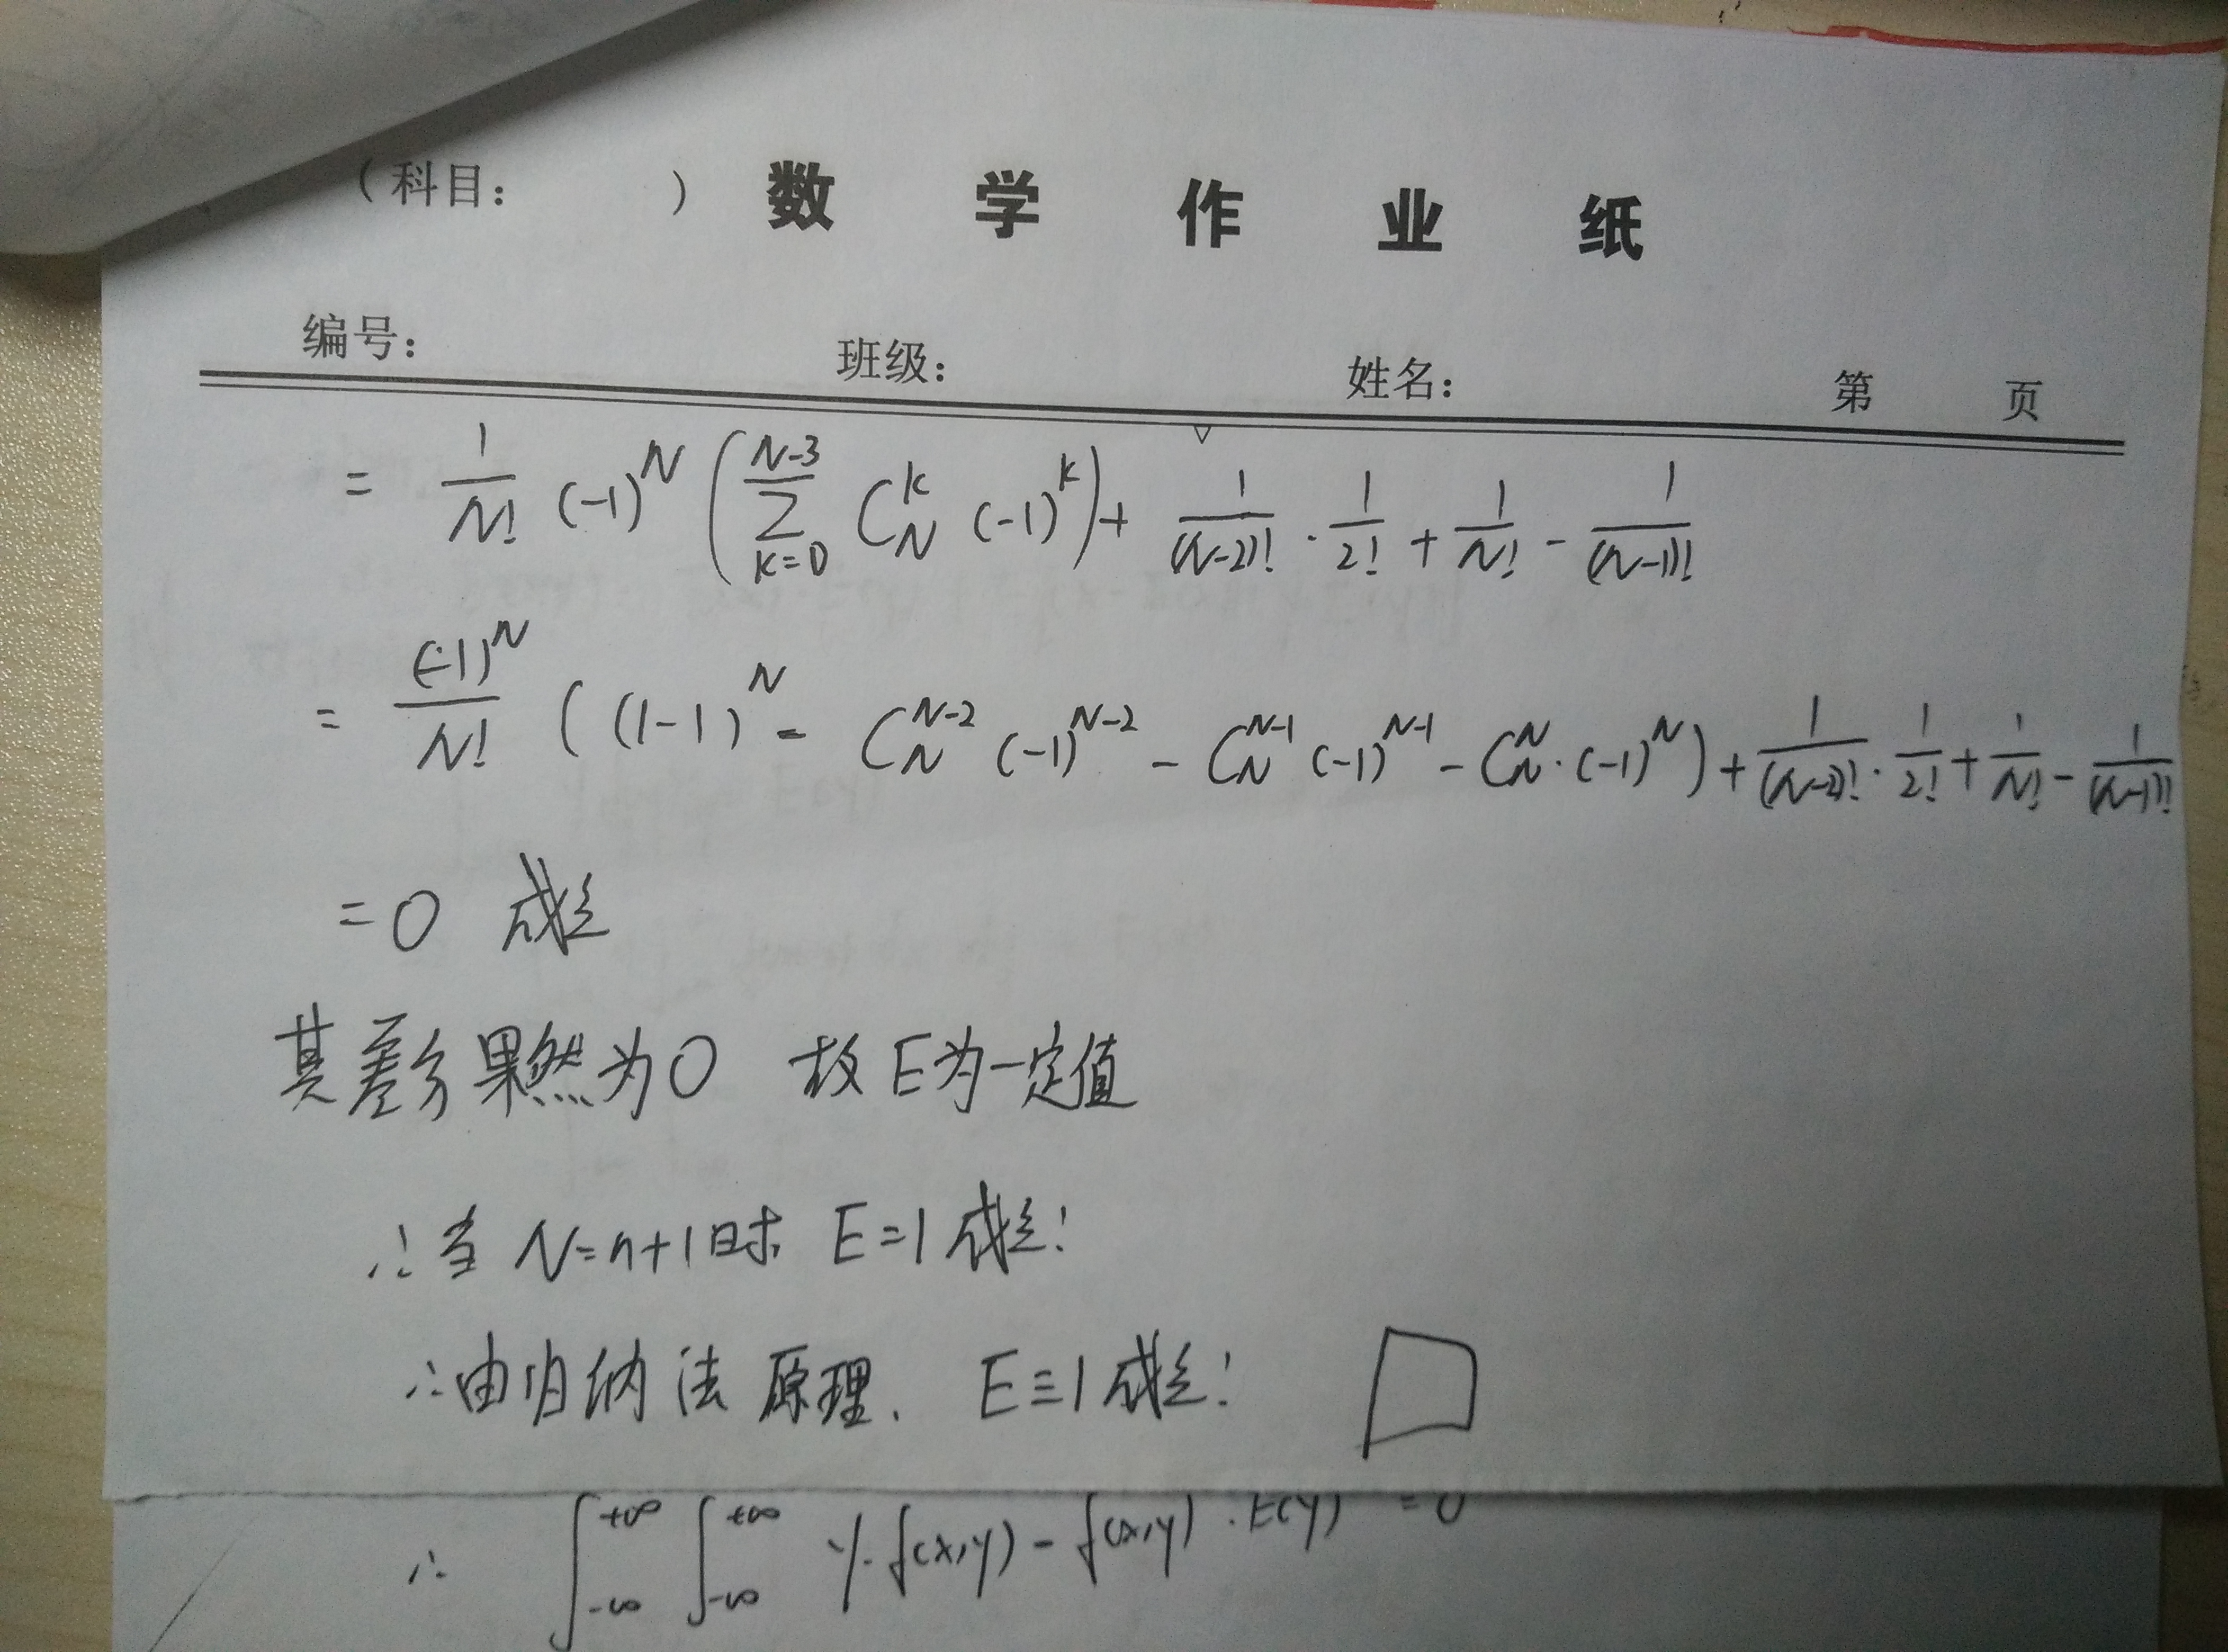 （科目：　　　）数 学 作 业 纸
编号：　　班级：　　姓名：　　第　页
= \frac{1}{N!} (-1)^N \left( \sum_{k=0}^{N-3} C_N^k (-1)^k \right) + \frac{1}{(N-2)!} \cdot \frac{1}{2!} + \frac{1}{N!} - \frac{1}{(N-1)!}
= \frac{(-1)^N}{N!} ( (1-1)^N - C_N^{N-2} (-1)^{N-2} - C_N^{N-1} (-1)^{N-1} - C_N^N \cdot (-1)^N ) + \frac{1}{(N-2)!} \cdot \frac{1}{2!} + \frac{1}{N!} - \frac{1}{(N-1)!}
= 0 成立
其差分果然为0 故E为一定值
∴当 N=n+1时 E=1成立!
∴由归纳法原理. E≡1成立! □
∴ \int_{-\infty}^{+\infty} \int_{-\infty}^{+\infty} y \cdot f(x,y) - f(x,y) \cdot E(y) = 0